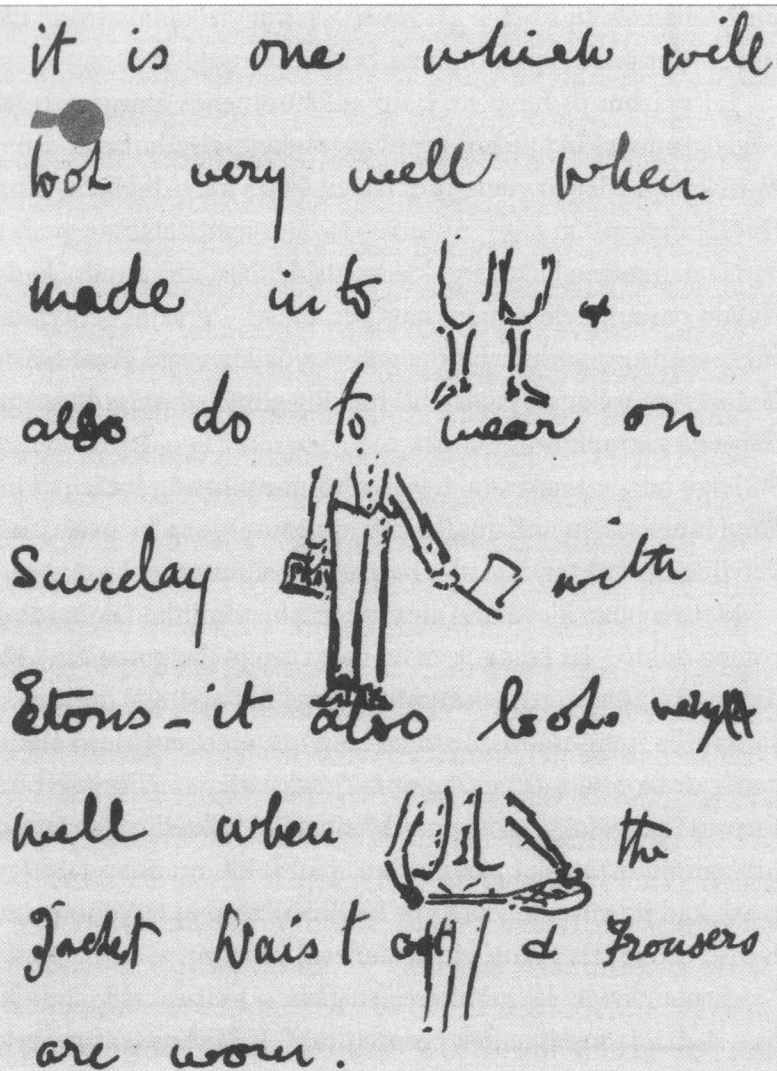 it is one which will
look very well when
made into +
also do to wear on
Sunday with
Etons - it also looks very
well when the
Jacket Waist coat & Trousers
are worn.